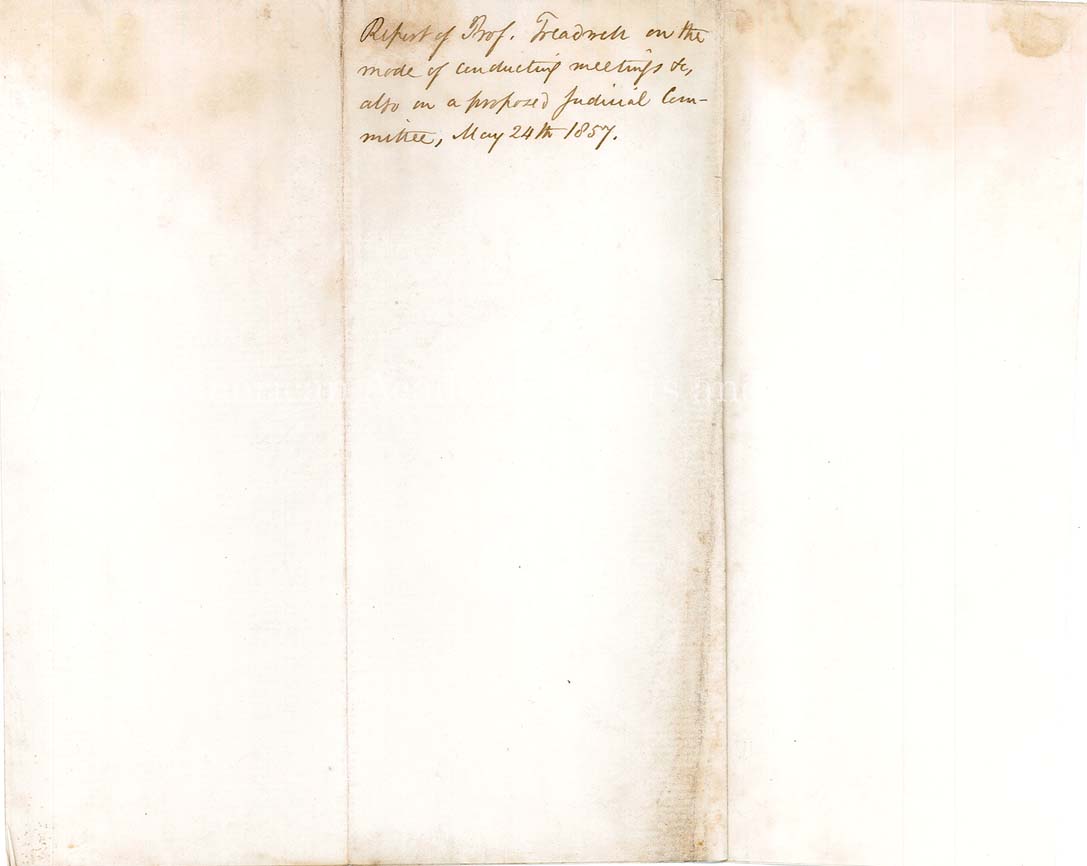 Report of Prof. Treadwell on the
mode of conducting meetings &c,
also on a proposed Judicial Com-
mittee, May 24th 1857.